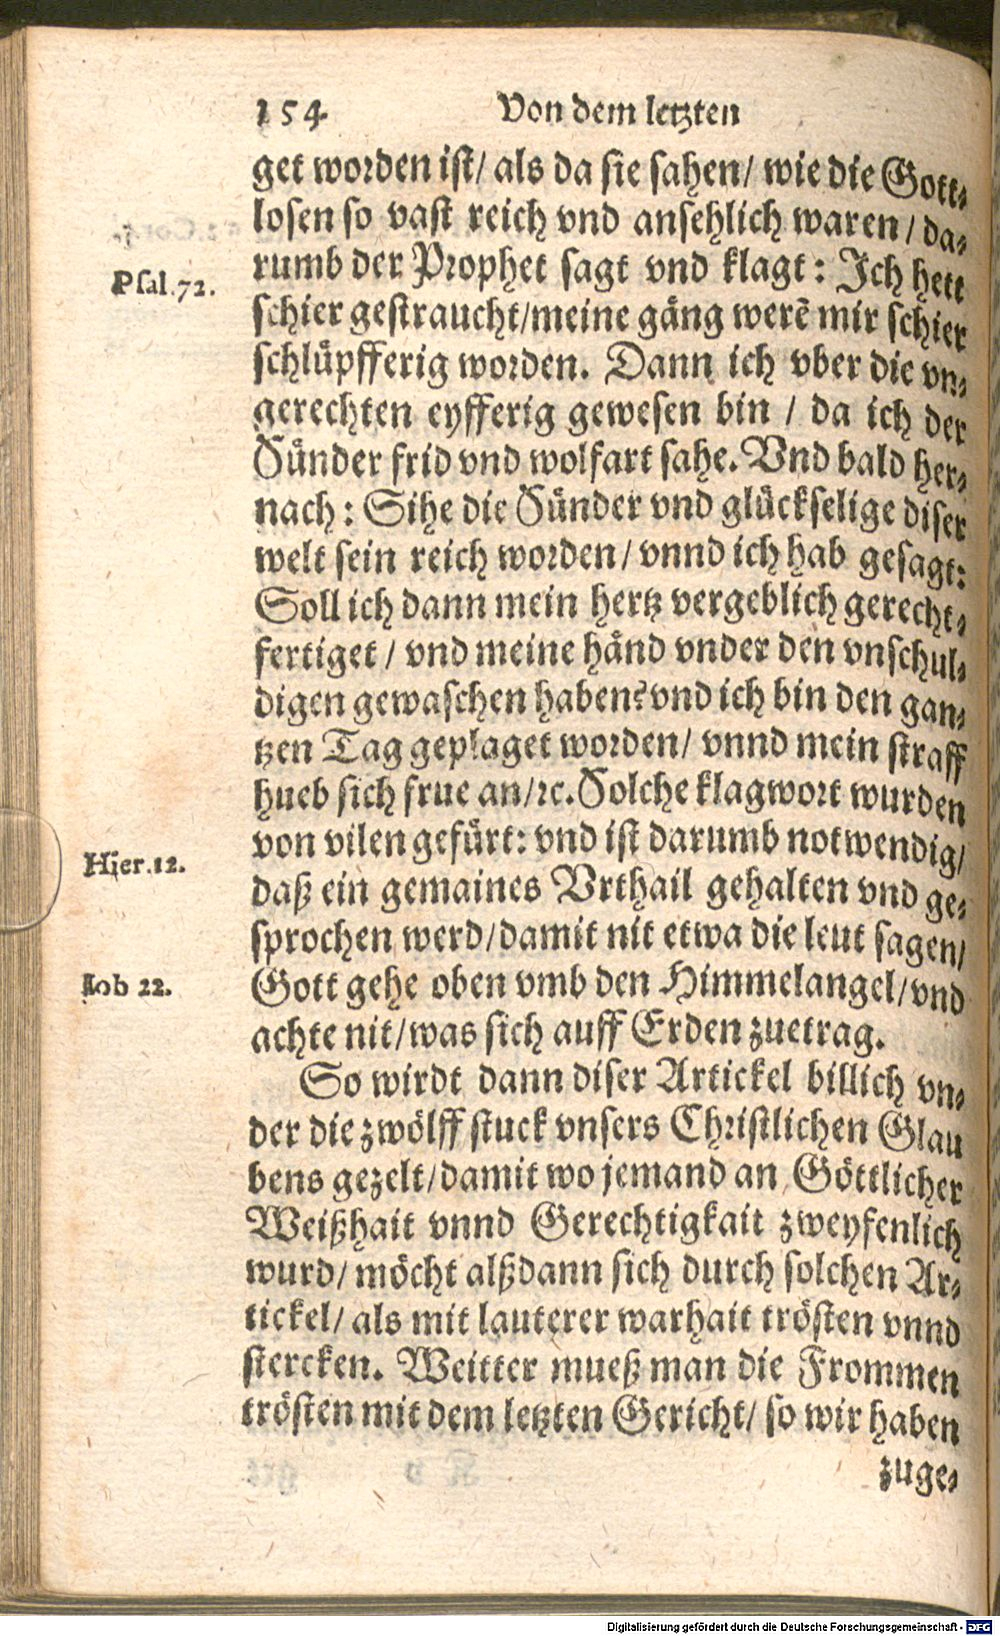 154 Von dem letzten
get worden ist/ als da sie sahen/ wie die Gott-
losen so vast reich vnd ansehlich waren/ da-
rumb der Prophet sagt vnd klagt: Ich hett
Psal.72.
schier gestraucht/meine gäng werē mir schier
schlüpfferig worden. Dann ich vber die vn-
gerechten eyfferig gewesen bin / da ich der
Sünder frid vnd wolfart sahe. Vnd bald her-
nach: Sihe die Sünder vnd glückselige diser
welt sein reich worden/ vnnd ich hab gesagt:
Soll ich dann mein hertz vergeblich gerecht-
fertiget / vnd meine händ vnder den vnschul-
digen gewaschen haben? vnd ich bin den gan-
tzen Tag geplaget worden/ vnnd mein straff
hueb sich frue an/ꝛc. Solche klagwort wurden
von vilen gefürt: vnd ist darumb notwendig/
Hier.12.
daß ein gemaines Vrthail gehalten vnd ge-
sprochen werd/damit nit etwa die leut sagen/
Gott gehe oben vmb den Himmelangel/vnd
Iob 22.
achte nit/was sich auff Erden zuetrag.
So wirdt dann diser Artickel billich vn-
der die zwölff stuck vnsers Christlichen Glau
bens gezelt/damit wo jemand an Göttlicher
Weißhait vnnd Gerechtigkait zweyfenlich
wurd/ möcht alßdann sich durch solchen Ar-
tickel/ als mit lauterer warhait trösten vnnd
stercken. Weitter mueß man die Frommen
trösten mit dem letzten Gericht/ so wir haben
zuge-
Digitalisierung gefördert durch die Deutsche Forschungsgemeinschaft - DFG